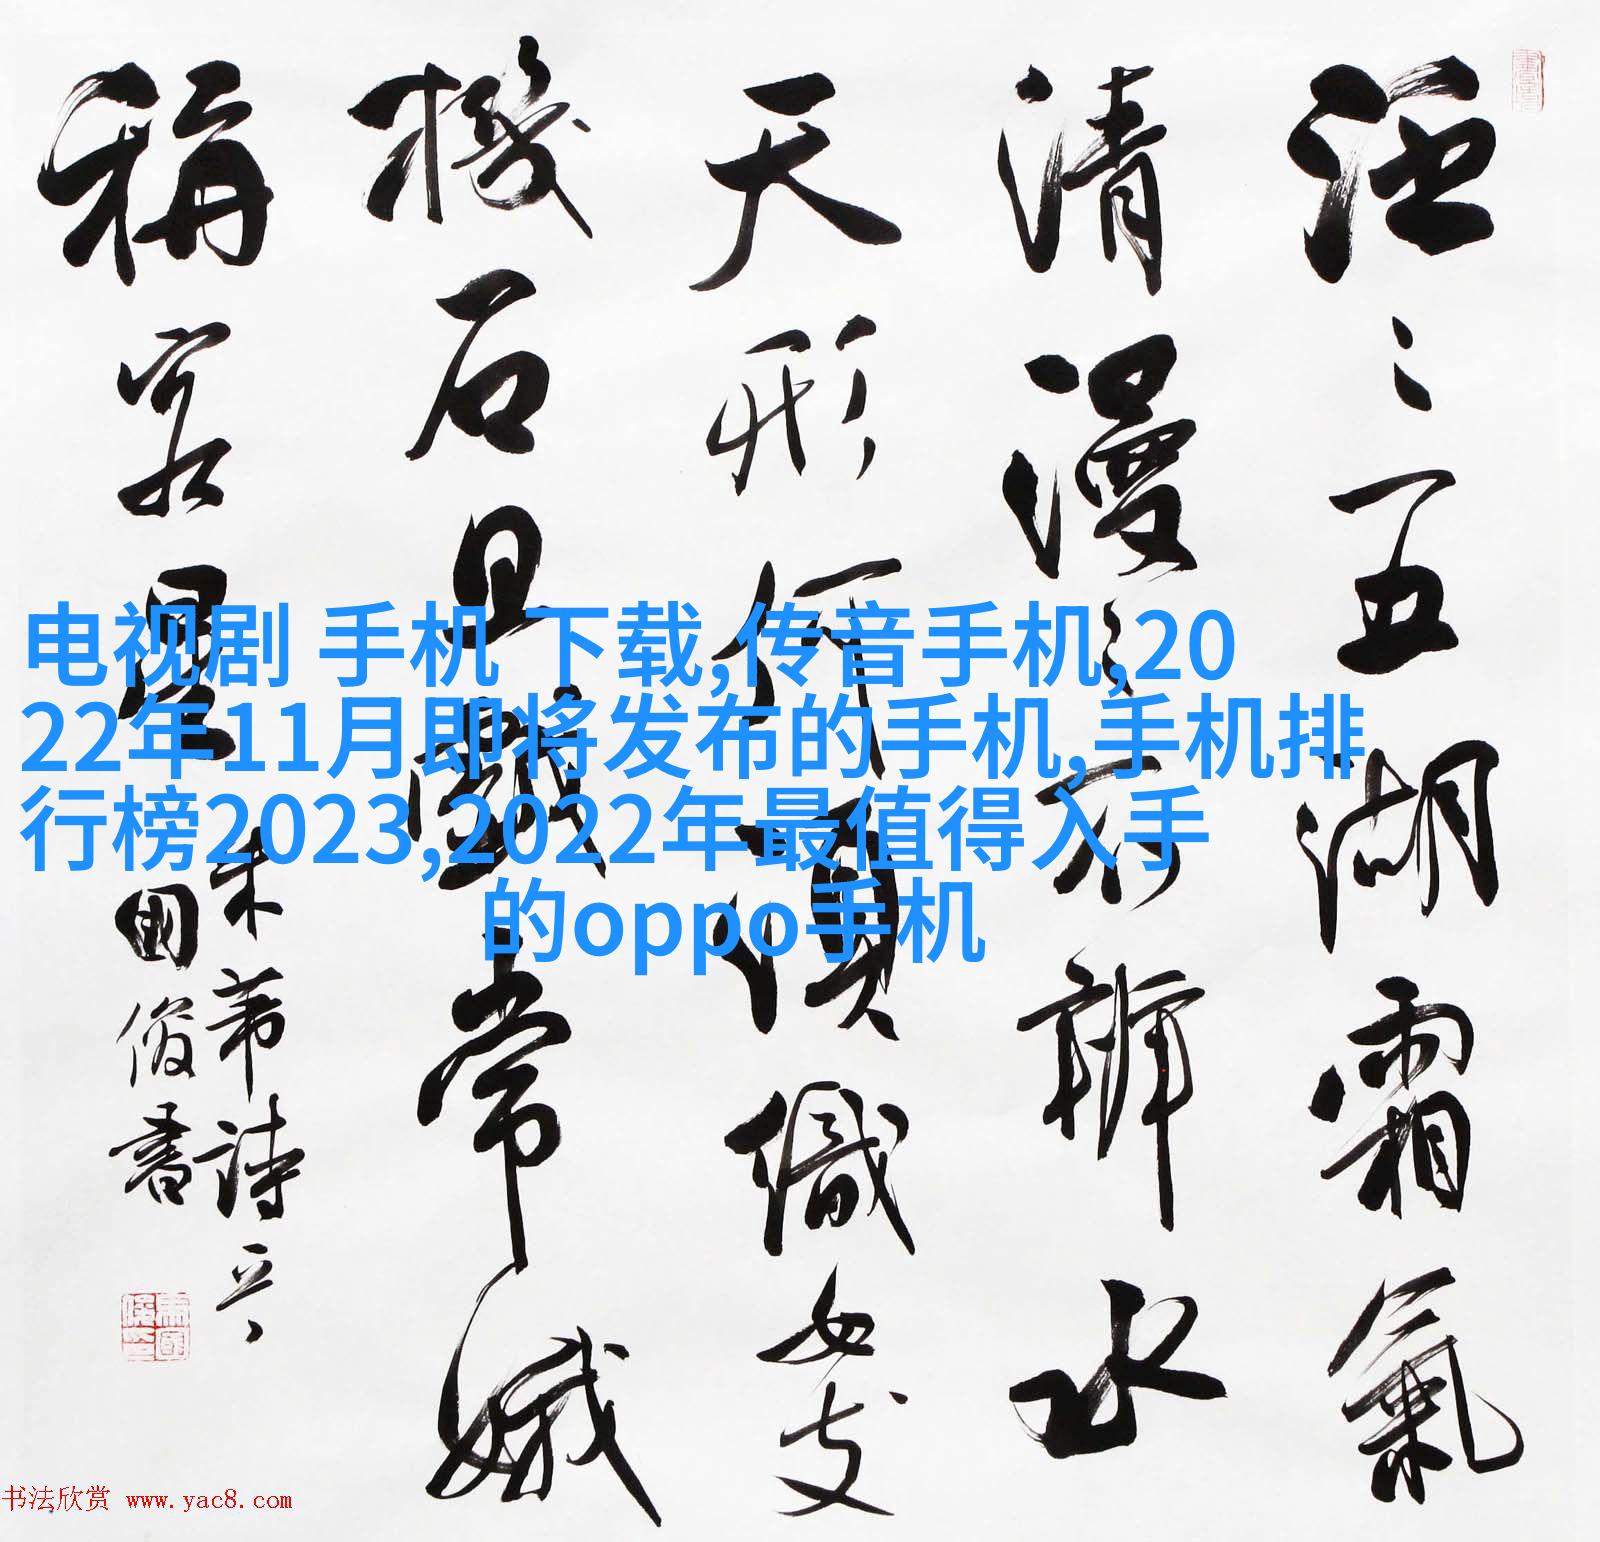 泛〻五湖霜氣
清漫〻不辨水
天形何須織女支
機石且戲常娥
稱客星
米芾詩
國俊書
电视剧 手机 下载,传音手机,20
22年11月即将发布的手机,手机排
行榜2023,2022年最值得入手
的oppo手机
书法欣赏 www.yac8.com